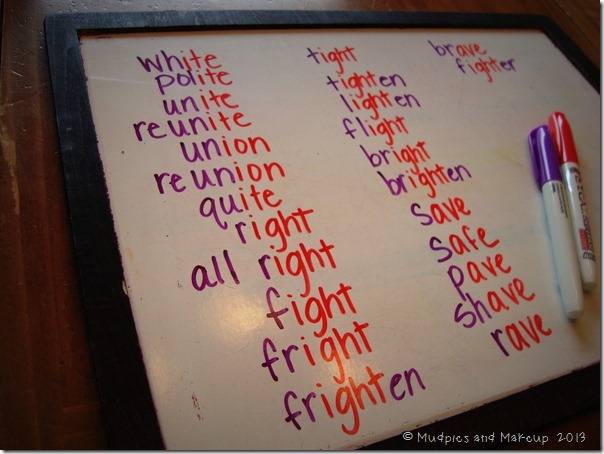 white
polite
unite
reunite
union
reunion
quite
right
all right
fight
fright
frighten
tight
tighten
lighten
flight
bright
brighten
save
safe
pave
shave
rave
brave
fighter
© Mudpies and Makeup 2013